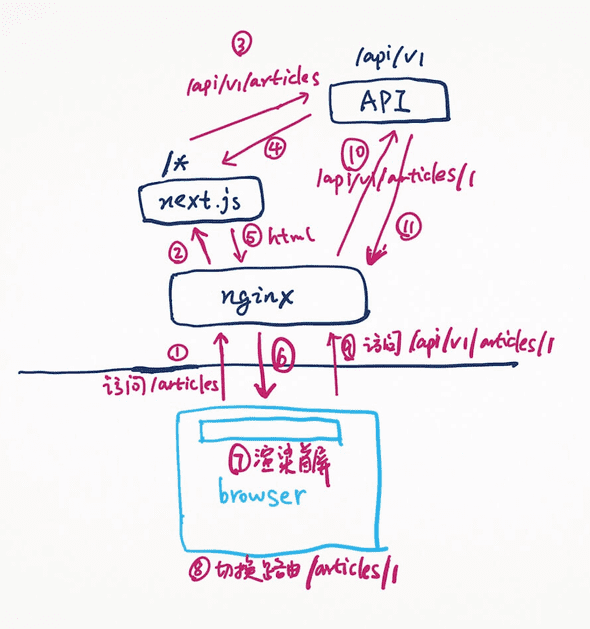 ③
/api/v1/articles
/api/v1
API
④
⑩
/api/v1/articles/1
/*
next.js
②
⑤ html
⑪
nginx
①
访问/articles
⑥
⑨ 访问 /api/v1/articles/1
⑦ 渲染首屏
browser
⑧ 切换路由/articles/1